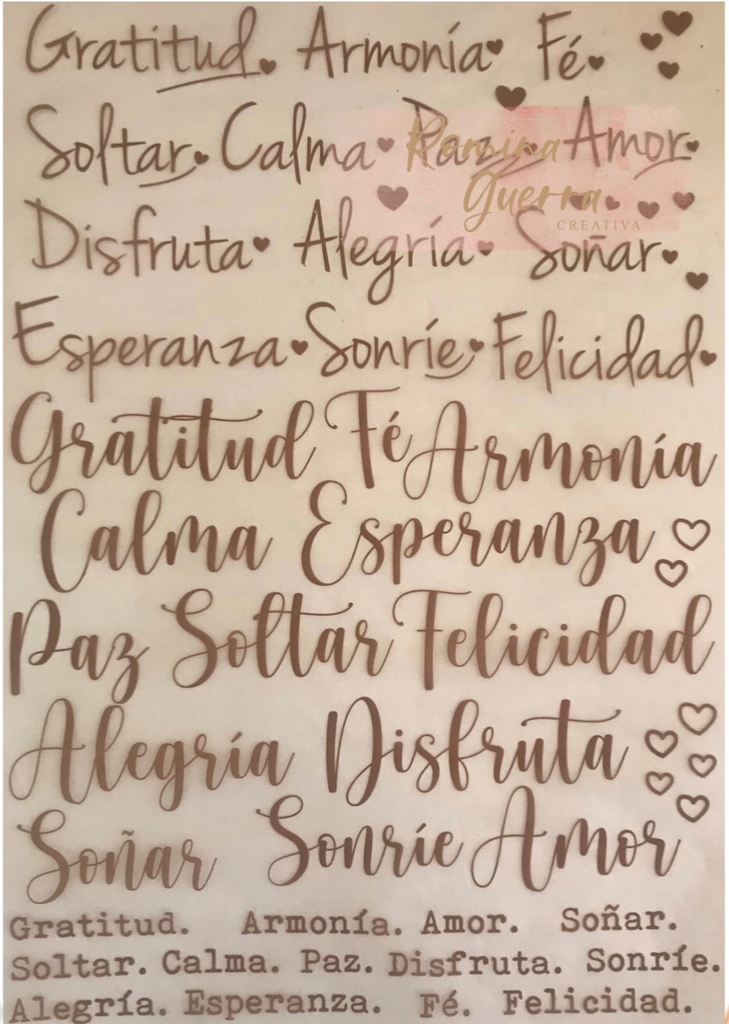 Gratitud. Armonía Fé.
Soltar. Calma Paz Amor.
Romina
Guerra
CREATIVA
Disfruta. Alegría. Soñar.
Esperanza. Sonríe. Felicidad.
Gratitud Fé Armonía
Calma Esperanza
Paz Soltar Felicidad
Alegría Disfruta
Soñar Sonríe Amor
Gratitud. Armonía. Amor. Soñar.
Soltar. Calma. Paz. Disfruta. Sonríe.
Alegría. Esperanza. Fé. Felicidad.